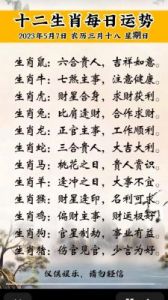 十二生肖每日运势
2023年5月7日 农历三月十八 星期日
生肖鼠：六合贵人，吉祥如意。
生肖牛：七煞主事，注意健康。
生肖虎：财星合身，求财获利。
生肖兔：比肩逢财，合作求财。
生肖龙：正官主事，工作顺利。
生肖蛇：三合贵人，大吉大利。
生肖马：桃花之日，贵人赏识。
生肖羊：逢冲之日，大事不宜。
生肖猴：财星逢印，名利可求。
生肖鸡：偏财主事，财运极好
生肖狗：官星制劫，事业有益。
生肖猪：伤官见官，少言为好。
仅供娱乐，请勿轻信